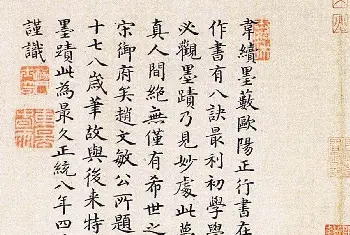 韋續墨藪歐陽正行書在
作書有八訣最利初學學
必觀墨蹟乃見妙處此蓋
真人間絕無僅有希世之
宋御府矣趙文敏公所題
十七八歲筆故與後来特
墨蹟此為最久正統八年四
謹識